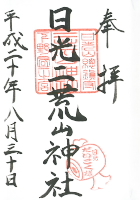 奉拝
日光二荒山神社
平成二十一年八月三十日